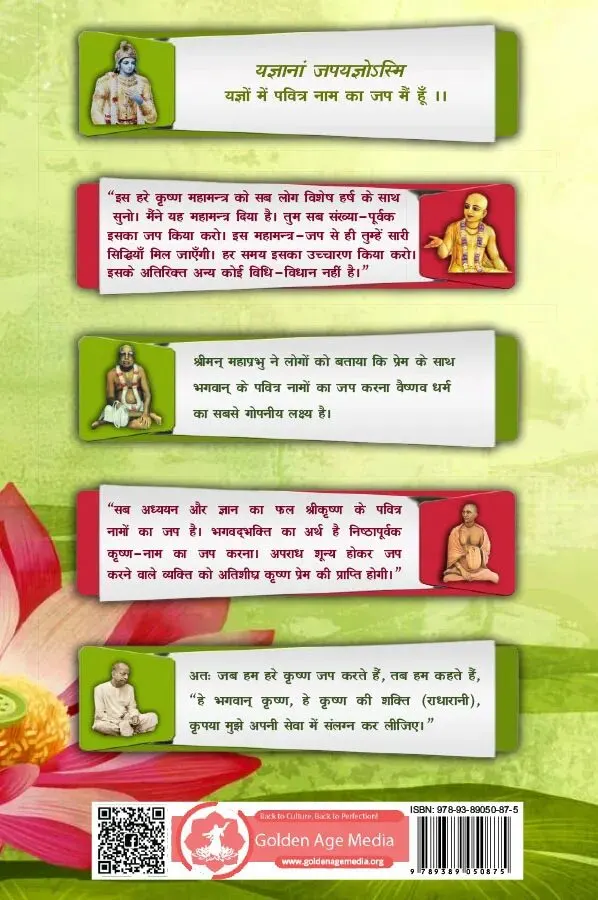 यज्ञानां जपयज्ञोऽस्मि
यज्ञों में पवित्र नाम का जप मैं हूँ ।।
“इस हरे कृष्ण महामन्त्र को सब लोग विशेष हर्ष के साथ
सुनो। मैंने यह महामन्त्र दिया है। तुम सब संख्या-पूर्वक
इसका जप किया करो। इस महामन्त्र-जप से ही तुम्हें सारी
सिद्धियाँ मिल जाएँगी। हर समय इसका उच्चारण किया करो।
इसके अतिरिक्त अन्य कोई विधि-विधान नहीं है।”
श्रीमन् महाप्रभु ने लोगों को बताया कि प्रेम के साथ
भगवान् के पवित्र नामों का जप करना वैष्णव धर्म
का सबसे गोपनीय लक्ष्य है।
“सब अध्ययन और ज्ञान का फल श्रीकृष्ण के पवित्र
नामों का जप है। भगवद्भक्ति का अर्थ है निष्ठापूर्वक
कृष्ण-नाम का जप करना। अपराध शून्य होकर जप
करने वाले व्यक्ति को अतिशीघ्र कृष्ण प्रेम की प्राप्ति होगी।”
अतः जब हम हरे कृष्ण जप करते हैं, तब हम कहते हैं,
“हे भगवान् कृष्ण, हे कृष्ण की शक्ति (राधारानी),
कृपया मुझे अपनी सेवा में संलग्न कर लीजिए।”
Back to Culture, Back to Perfection!
Golden Age Media
www.goldenagemedia.org
ISBN: 978-93-89050-87-5
9 789389 050875